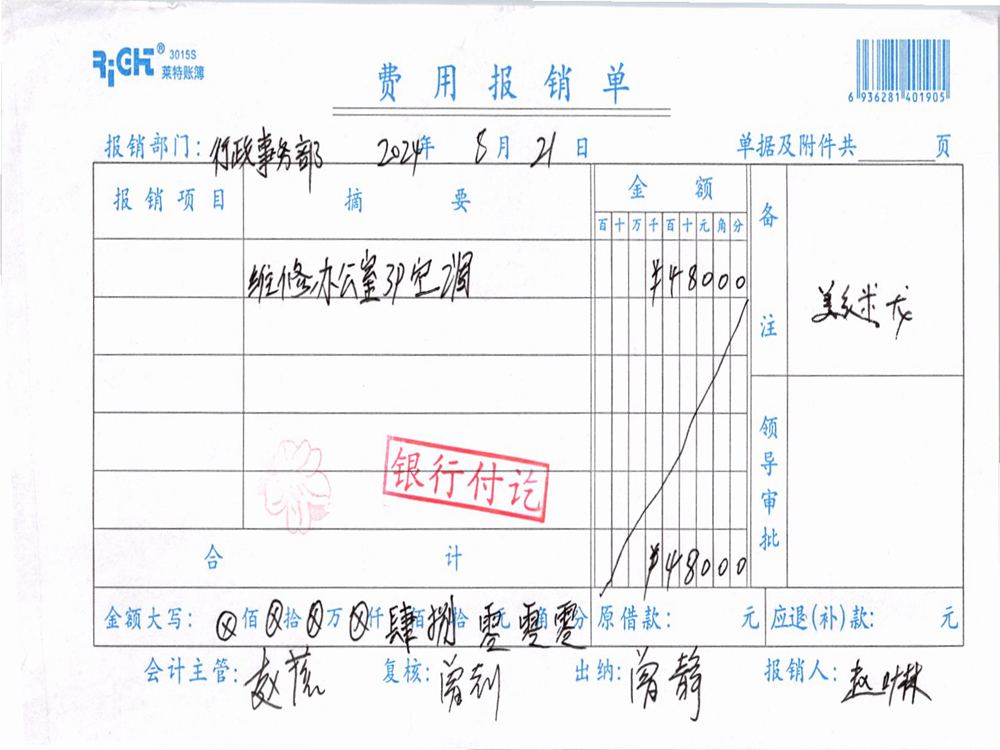 RiGHT® 3015S
莱特账簿
费用报销单
6 936281 401905
报销部门: 行政事务部 2024年 8月 21日 单据及附件共 页
报销项目 摘要 金额 备注
百十万千百十元角分
维修办公室3P空调 ¥48000
银行付讫
领导审批
合计 ¥48000
金额大写: ⊗佰⊗拾⊗万⊗仟肆佰捌拾零元零角零分 原借款: 元 应退(补)款: 元
会计主管: 复核: 曾刻 出纳: 曾静 报销人: 赵叶林